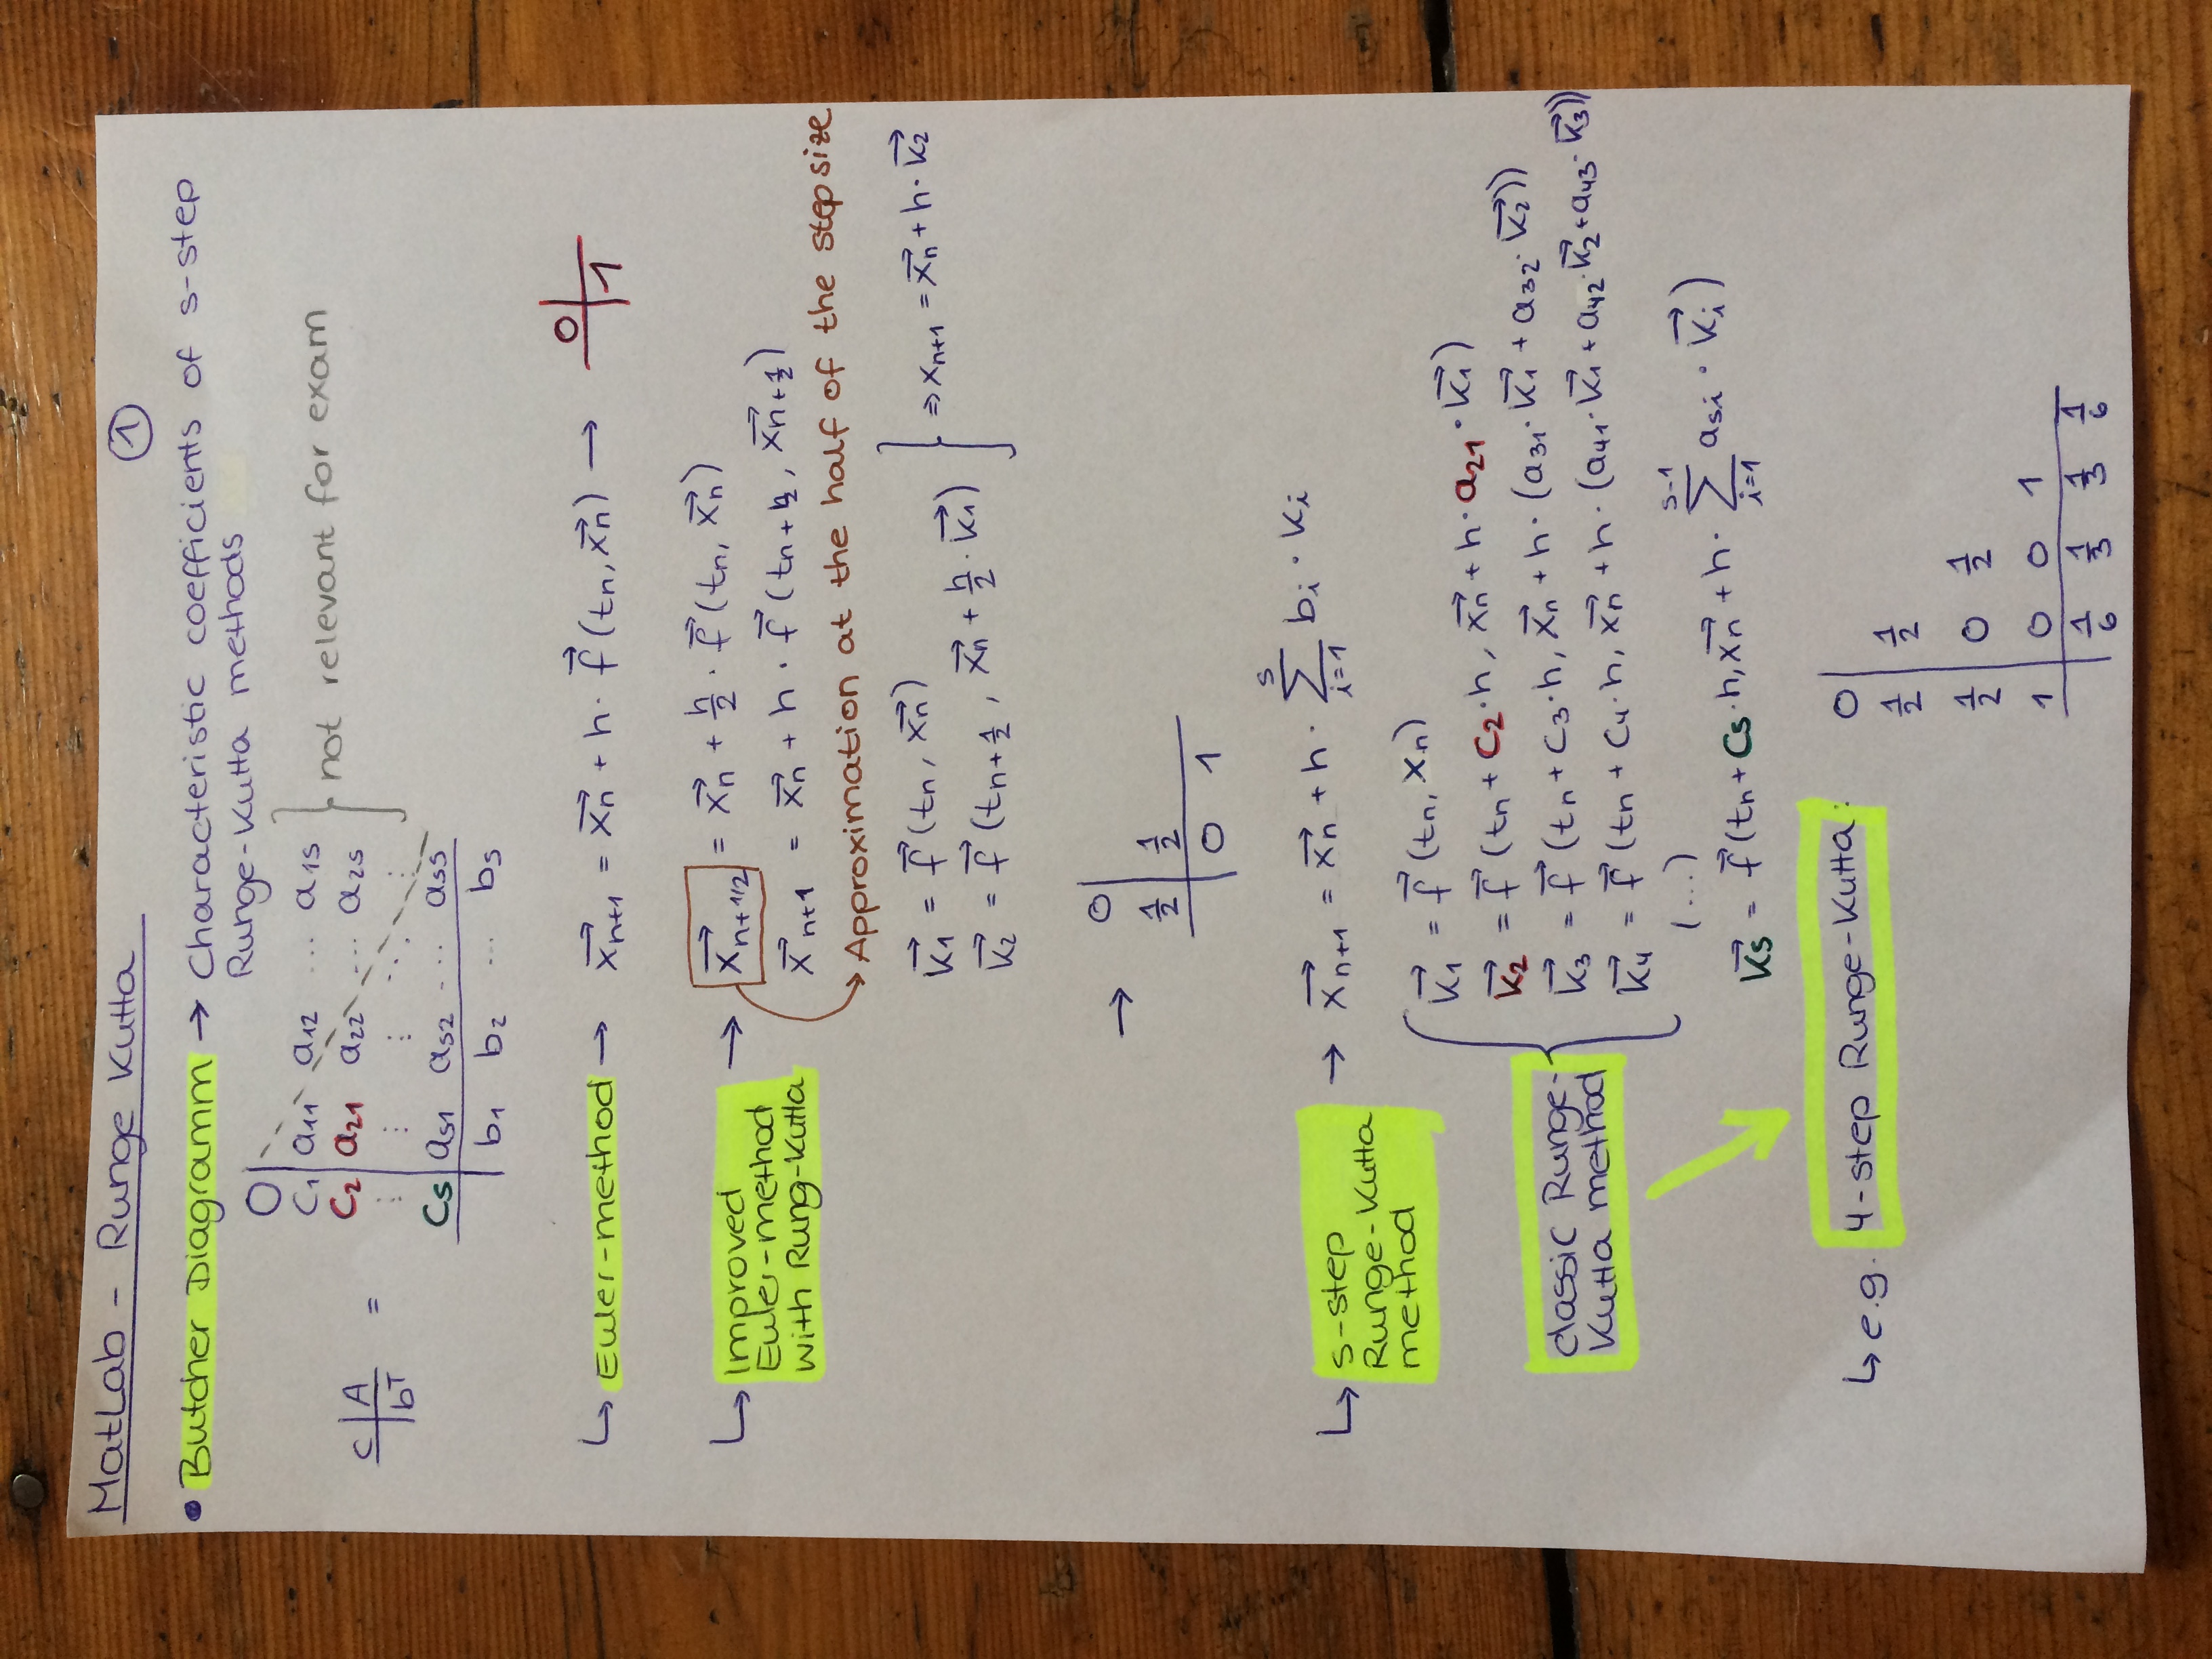 MatLab - Runge Kutta ①
• Butcher Diagramm → Characteristic coefficients of s-step
Runge-Kutta methods
0 |
c₁ | a₁₁ a₁₂ ... a₁s
c₂ | a₂₁ a₂₂ ... a₂s } not relevant for exam
c | A =
bᵀ
⋮ | ⋮ ⋮ ⋱ ⋮
cs | as₁ as₂ ... ass
b₁ b₂ ... bs
↳ Euler-method → x⃗n+1 = x⃗n + h · f⃗ (tn, x⃗n) → 0 |
| 1
↳ Improved Euler-method with Rung-Kutta → x⃗n+1/2 = x⃗n + h/2 · f⃗ (tn, x⃗n)
x⃗n+1 = x⃗n + h · f⃗ (tn+½, x⃗n+½)
→ Approximation at the half of the stepsize
k⃗₁ = f⃗ (tn, x⃗n)
k⃗₂ = f⃗ (tn+½, x⃗n + h/2 · k⃗₁) } ⇒ xn+1 = x⃗n + h · k⃗₂
→ 0 |
½ | ½
| 0 1
↳ s-step Runge-Kutta method → x⃗n+1 = x⃗n + h · Σ(i=1 → s) bi · ki
classic Runge-Kutta method { k⃗₁ = f⃗ (tn, xn)
k⃗₂ = f⃗ (tn + c₂·h, x⃗n + h · a₂₁ · k⃗₁)
k⃗₃ = f⃗ (tn + c₃·h, x⃗n + h · (a₃₁·k⃗₁ + a₃₂·k⃗₂))
k⃗₄ = f⃗ (tn + c₄·h, x⃗n + h · (a₄₁·k⃗₁ + a₄₂·k⃗₂ + a₄₃·k⃗₃))
(...)
k⃗s = f⃗ (tn + cs·h, x⃗n + h · Σ(i=1 → s-1) asi · k⃗i)
↳ e.g. 4-step Runge-Kutta:
0 |
½ | ½
½ | 0 ½
1 | 0 0 1
| 1/6 1/3 1/3 1/6